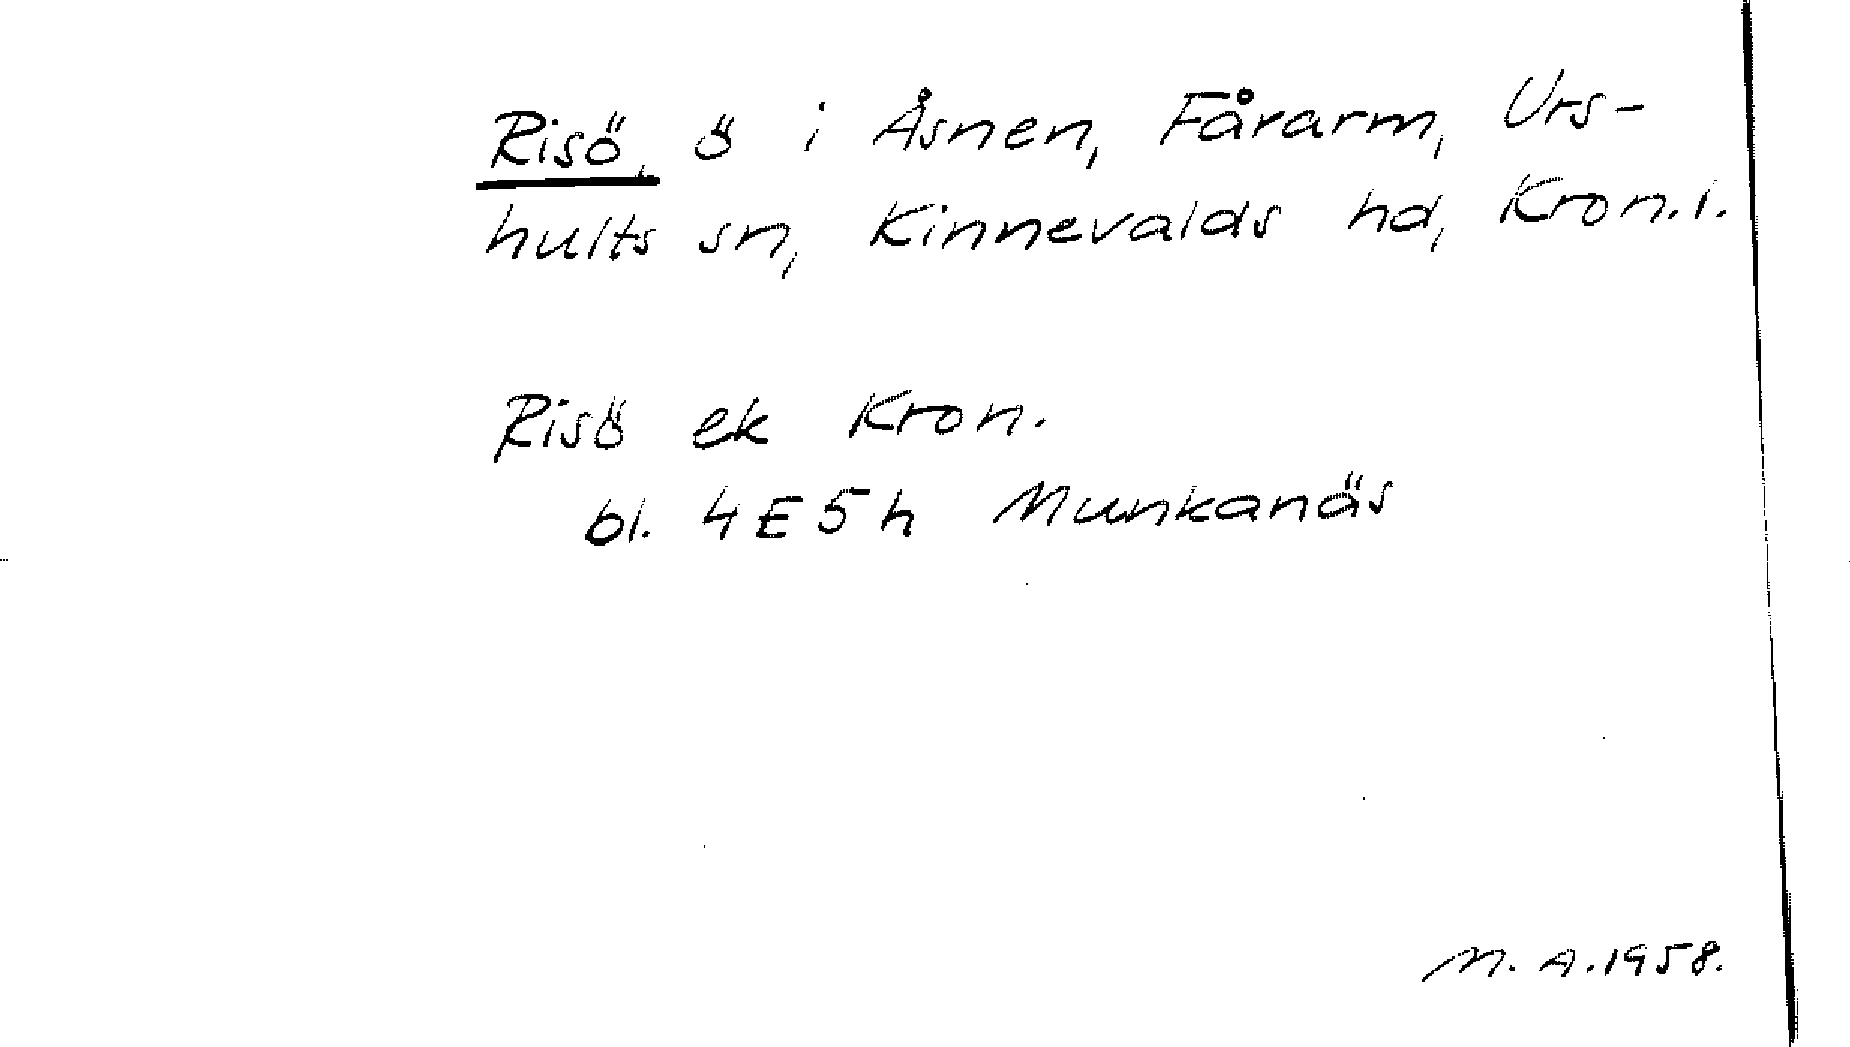 Risö, ö i Åsnen, Fårarm, Urs-
hults sn, Kinnevalds hd, Kron.l.
Risö ek Kron.
bl. 4E5h Munkanäs
M. A. 1958.